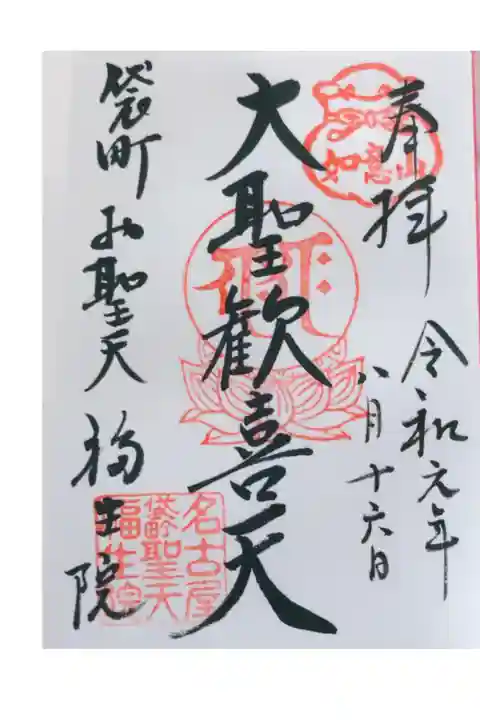 奉拝
令和元年
八月十六日
如意山
大聖歓喜天
袋町お聖天
福生院
名古屋
袋町聖天
福生院